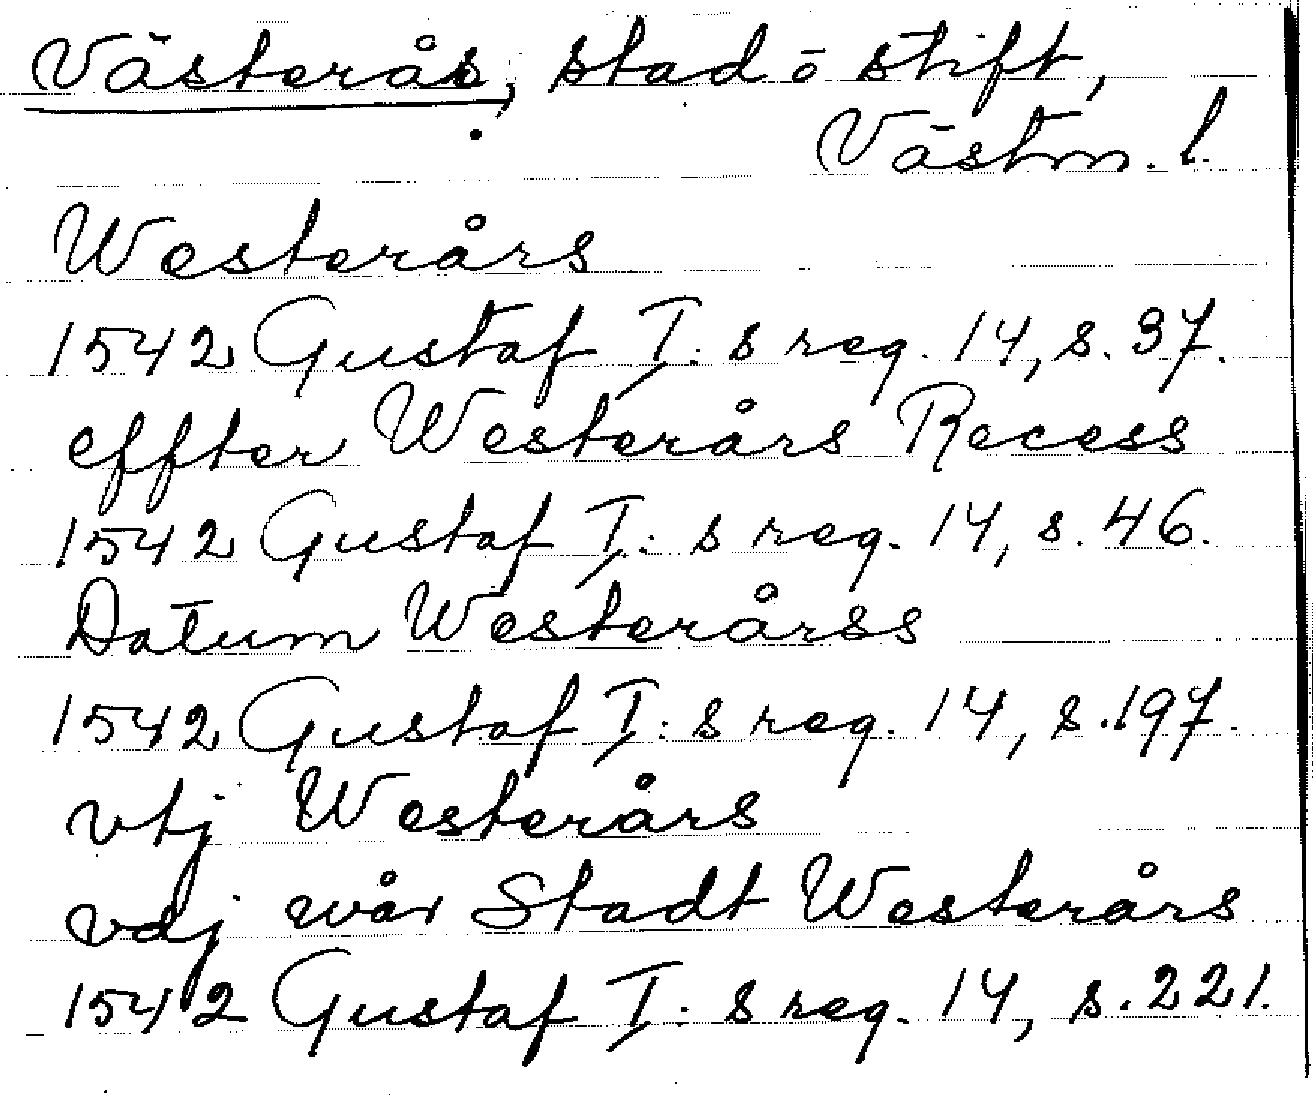 Västerås, stad ō stift,
Västm. l.
Westerårs
1542 Gustaf I: s reg. 14, s. 37.
effter Westerårs Recess
1542 Gustaf I: s reg. 14, s. 46.
Datum Westerårss
1542 Gustaf I: s reg. 14, s. 197.
vtj Westerårs
vdj wår Stadt Westerårs
1542 Gustaf I: s reg. 14, s. 221.